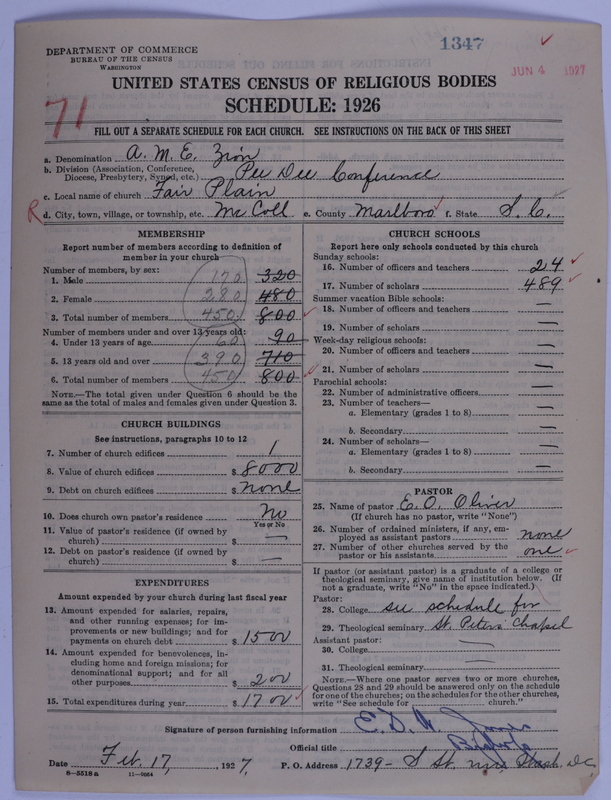 DEPARTMENT OF COMMERCE
BUREAU OF THE CENSUS
WASHINGTON
1347
JUN 4 1927
UNITED STATES CENSUS OF RELIGIOUS BODIES
SCHEDULE: 1926
71
FILL OUT A SEPARATE SCHEDULE FOR EACH CHURCH. SEE INSTRUCTIONS ON THE BACK OF THIS SHEET
a. Denomination A. M. E. Zion
b. Division (Association, Conference, Diocese, Presbytery, Synod, etc.) Pee Dee Conference
c. Local name of church Fair Plain
R d. City, town, village, or township, etc. Mc Coll e. County Marlboro f. State S. C.
MEMBERSHIP
Report number of members according to definition of
member in your church
Number of members, by sex:
1. Male 170 320
2. Female 280 480
3. Total number of members 450 800
Number of members under and over 13 years old:
4. Under 13 years of age 60 90
5. 13 years old and over 390 710
6. Total number of members 450 800
NOTE.—The total given under Question 6 should be the
same as the total of males and females given under Question 3.
CHURCH BUILDINGS
See instructions, paragraphs 10 to 12
7. Number of church edifices 1
8. Value of church edifices $ 8000
9. Debt on church edifices $ none
10. Does church own pastor's residence No
Yes or No
11. Value of pastor's residence (if owned by
church) $ —
12. Debt on pastor's residence (if owned by
church) $ —
EXPENDITURES
Amount expended by your church during last fiscal year
13. Amount expended for salaries, repairs,
and other running expenses; for im-
provements or new buildings; and for
payments on church debt $ 1500
14. Amount expended for benevolences, in-
cluding home and foreign missions; for
denominational support; and for all
other purposes $ 200
15. Total expenditures during year $ 1700
CHURCH SCHOOLS
Report here only schools conducted by this church
Sunday schools:
16. Number of officers and teachers 24
17. Number of scholars 489
Summer vacation Bible schools:
18. Number of officers and teachers —
19. Number of scholars —
Week-day religious schools:
20. Number of officers and teachers —
21. Number of scholars —
Parochial schools:
22. Number of administrative officers —
23. Number of teachers—
a. Elementary (grades 1 to 8) —
b. Secondary —
24. Number of scholars—
a. Elementary (grades 1 to 8) —
b. Secondary —
PASTOR
25. Name of pastor E. O. Oliver
(If church has no pastor, write "None")
26. Number of ordained ministers, if any, em-
ployed as assistant pastors none
27. Number of other churches served by the
pastor or his assistants one
If pastor (or assistant pastor) is a graduate of a college or
theological seminary, give name of institution below. (If
not a graduate, write "No" in the space indicated.)
Pastor:
28. College see schedule for
29. Theological seminary St. Peters Chapel
Assistant pastor:
30. College —
31. Theological seminary —
NOTE.—Where one pastor serves two or more churches,
Questions 28 and 29 should be answered only on the schedule
for one of the churches; on the schedules for the other churches,
write "See schedule for church."
Signature of person furnishing information E. D. W. Jones
Official title Bishop
Date Feb. 17, 1927. P. O. Address 1739- S St. nw, Wash. DC
8-5518a 11-9664